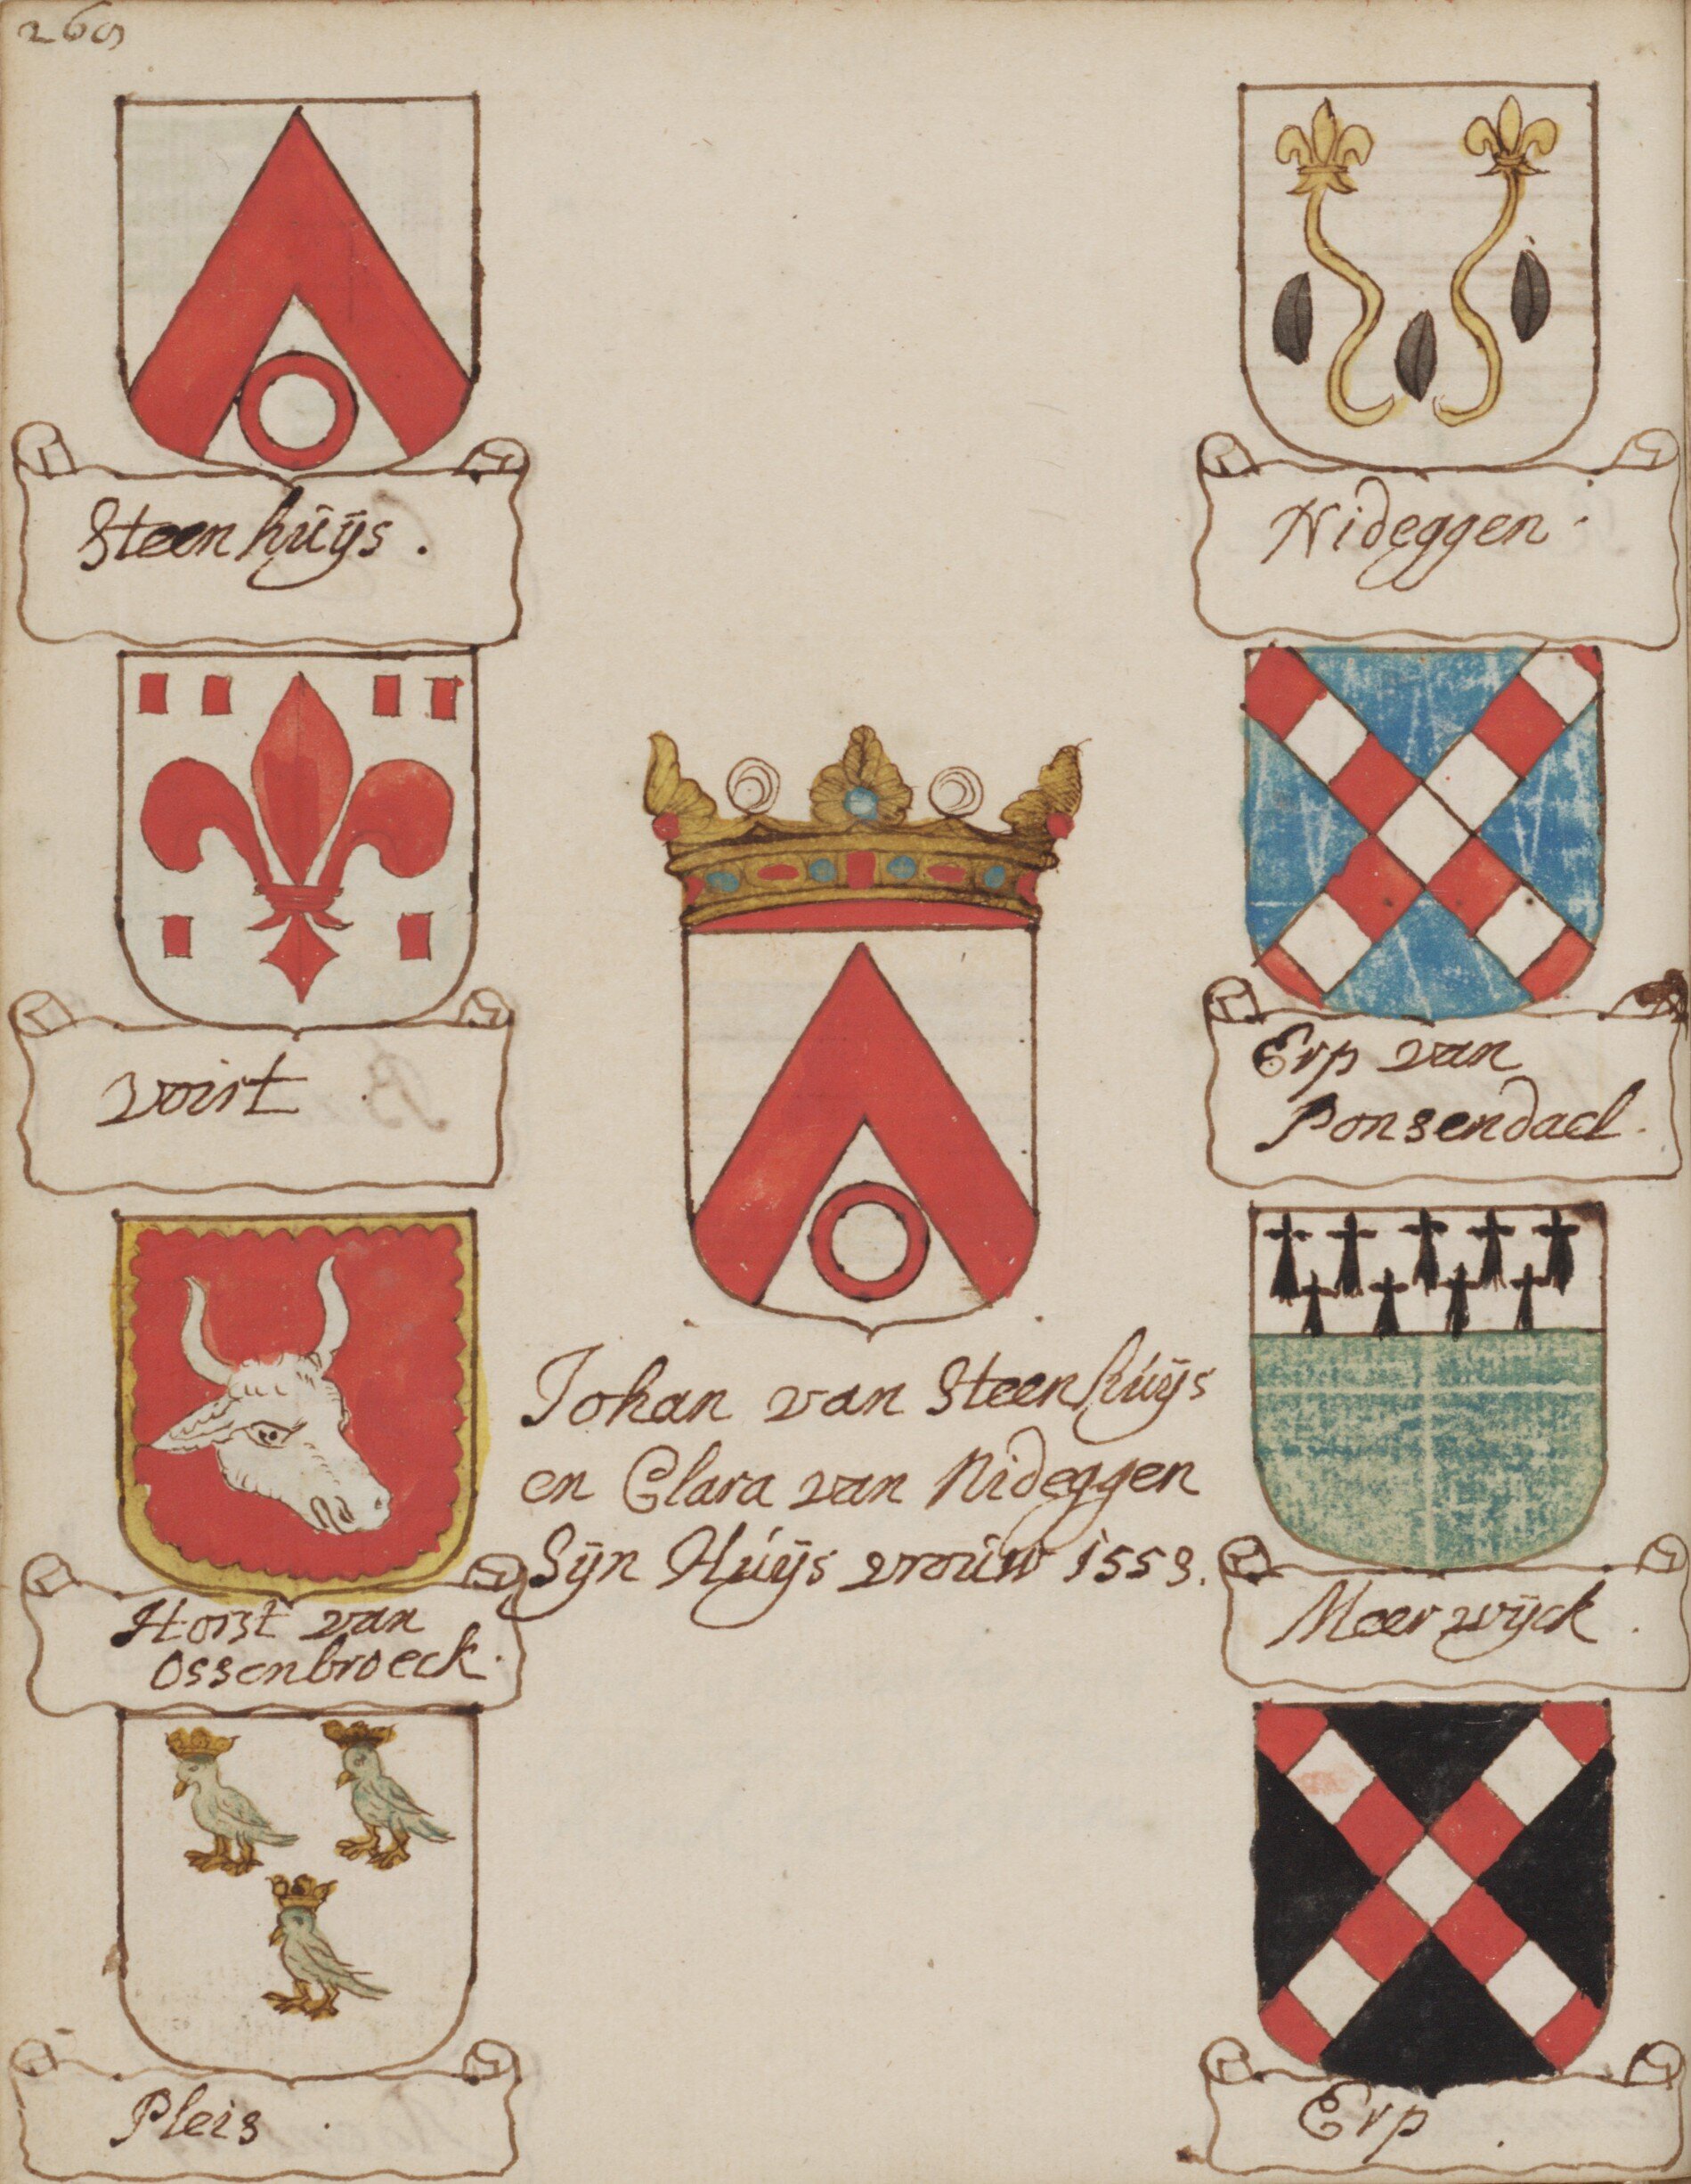 269
Steenhuÿs.
Nideggen
voirt
Erp van
Ponsendael.
Johan van Steenhuÿs
en Clara van Nideggen
Sijn Huÿs vrouw 1553.
Horst van
Ossenbroeck.
Meerwijck.
Pleis.
Erp.